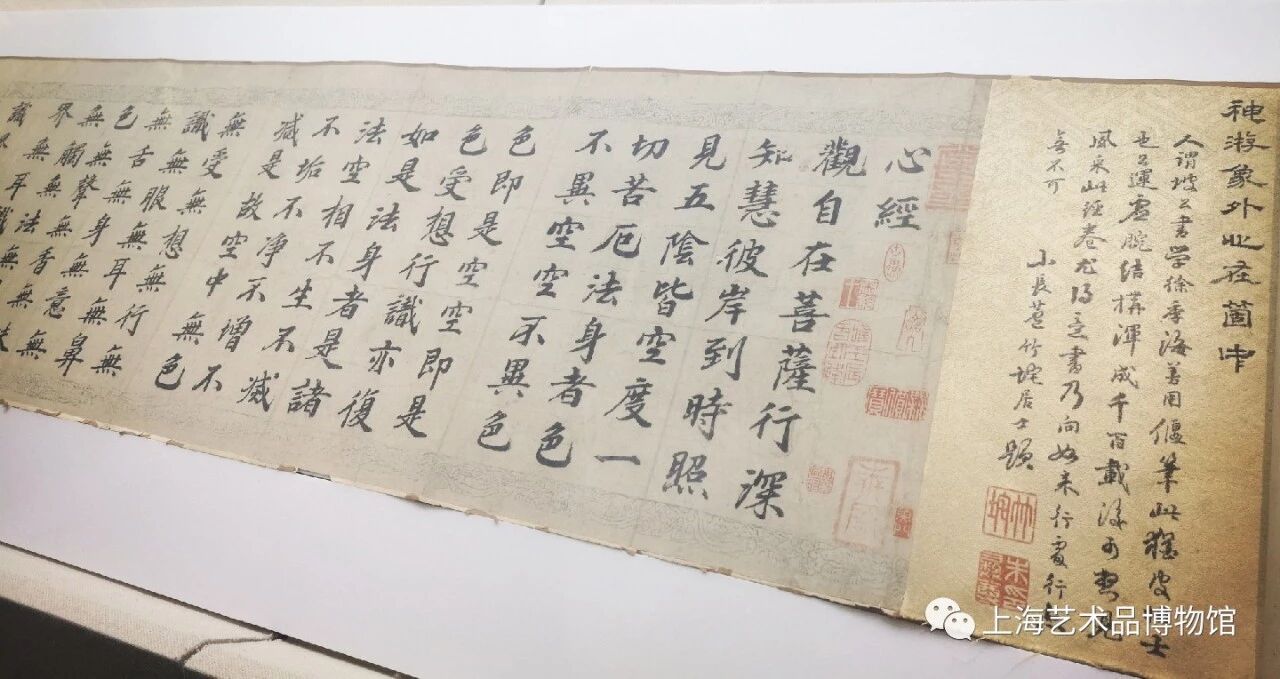 神游象外 在箇中
人謂坡公書學徐季海善用偃筆此 皮 士
也公運虛腕結構渾成千百載後可想見
風采此經卷尤得意書乃向如來行處行
無不可
小長蘆竹垞居士題
竹垞
朱彝尊
心經
觀自在菩薩行深
知慧彼岸到時照
見五陰皆空度一
切苦厄法身者色
不異空空不異色
色即是空空即是
色受想行識亦復
如是法身者是諸
法空相不生不滅
不垢不淨不增不
減是故空中無色
無受無想無行無
識無眼無耳無鼻
無舌無身無意無
色無聲無香無
無觸無法無
界無耳識無
識界
上海艺术品博物馆